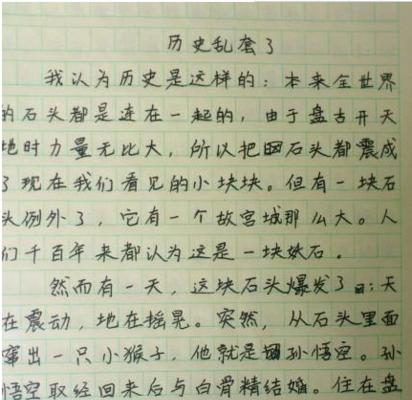 历史乱套了
我认为历史是这样的：本来全世界
的石头都是连在一起的，由于盘古开天
地时力量无比大，所以把石头都震成
了现在我们看见的小块块。但有一块石
头例外了，它有一个故宫城那么大。人
们千百年来都认为这是一块妖石。
然而有一天，这块石头爆发了：天
在震动，地在摇晃。突然，从石头里面
窜出一只小猴子，他就是孙悟空。孙
悟空取经回来后与白骨精结婚。住在盘